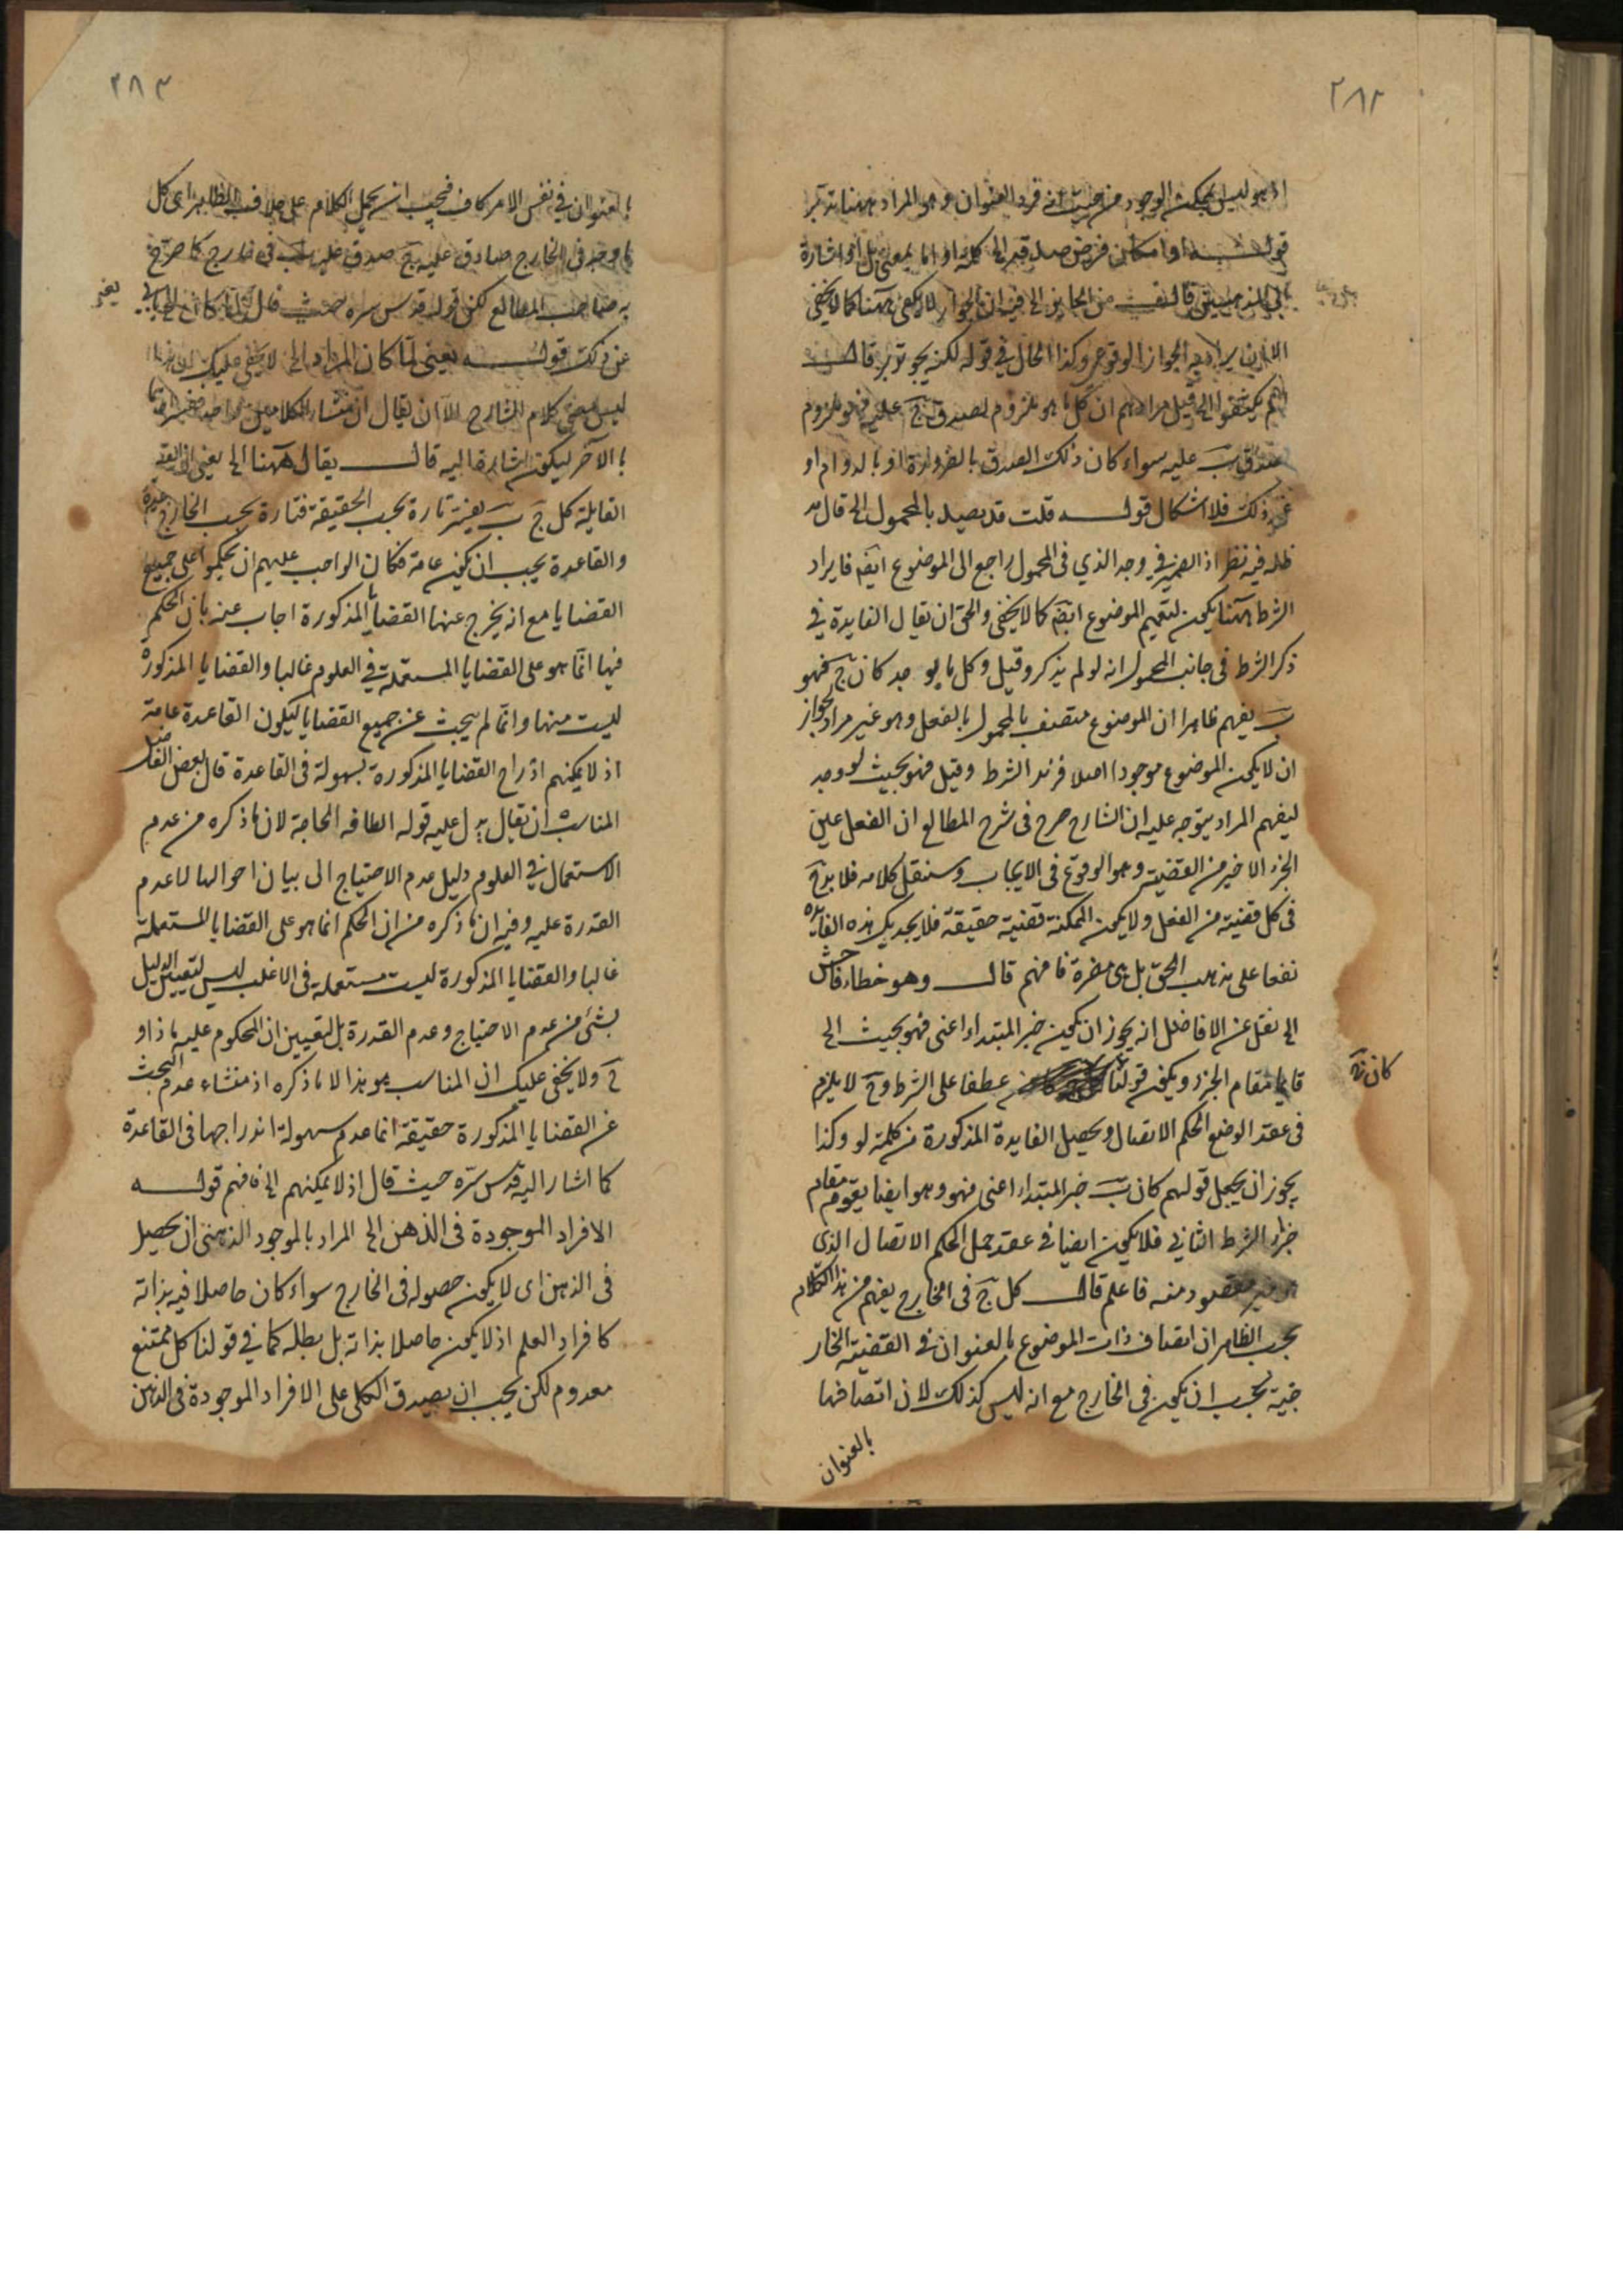 ٢٨٢
اذ هو ليس بممكن الوجود من حيث انه فرد العنوان وهو المراد ههنا تدبر
قوله او امكان فرض صدقه الى كلمة او اما بمعنى بل او اشارة
الى المذهبين قال من الجايز الى فيه ان الجواز لا يكفى ههنا كما لا يخفى
الا ان يراد به الجواز الوقوعى وكذا الحال فى قوله لكنه يجوز تدبر قال
لم يكتفوا الى قيل مرادهم ان كل ما هو ملزوم لصدق ج عليه فهو ملزوم
لصدق ب عليه سواء كان ذلك الصدق بالضرورة او بالدوام او
غير ذلك فلا اشكال قوله قلت قد يصير بالمحمول الى قال مد
ظله فيه نظر اذ الضمير فى وجد الذي فى المحمول راجع الى الموضوع ايضا فايراد
الشرط ههنا يكون لتعميم الموضوع ايضا كما لا يخفى والحق ان يقال الفايدة فى
ذكر الشرط فى جانب المحمول انه لو لم يذكر وقيل وكل ما لو وجد كان ج فهو
ب يفهم ظاهرا ان الموضوع متصف بالمحمول بالفعل وهو غير مراد لجواز
ان لا يكون الموضوع موجودا اصلا فزيد الشرط وقيل فهو بحيث لو وجد
ليفهم المراد يتوجه عليه ان الشارح صرح فى شرح المطالع ان الفعل عين
الجزء الاخير من القضية وهو الوقوع فى الايجاب وسننقل كلامه فلا بد ح
فى كل قضية من الفعل ولا يكون الممكنة قضية حقيقة فلا يجديك هذه الفايدة
نفعا على مذهب الحق بل هى مضرة فافهم قال وهو خطاء فاحش
الى نقل عن الافاضل انه يجوز ان يكون خبر المبتداء اعنى فهو بحيث الى
قايما مقام الجزاء ويكون قولنا عطفا على الشرط وح لا يلزم
كان ج
فى عقد الوضع الحكم الاتصال ويحصل الفايدة المذكورة من كلمة لو وكذا
يجوز ان يجعل قولهم كان ب خبر المبتداء اعنى فهو وهو ايضا يقوم مقام
جزاء الشرط الثاني فلا يكون ايضا فى عقد حمل الحكم الاتصال الذى
غير مقصود منه فاعلم قال كل ج فى الخارج يفهم من هذا الكلام
بحسب الظاهر ان اتصاف ذات الموضوع بالعنوان فى القضية الخار
جية يجب ان يكون فى الخارج مع انه ليس كذلك لان اتصافها
بالعنوان
٢٨٣
بالعنوان فى نفس الامر كاف فيجب ان يحمل الكلام على خلاف الظاهر اى كل
ما وجد فى الخارج صادق عليه ج صدق عليه ب فى خارج كما صرح
به صاحب المطالع لكن قوله قدس سره حيث قال
يعنى
عن ذلك قوله يعنى لما كان المراد الى لا يخفى عليك ان هذا
ليس معنى كلام الشارح الا ان يقال ان منشاء الكلامين واحد
بالآخر ليكون اشارة اليه قال يقال ههنا الى يعنى ان القضية
القايلة كل ج ب يعتبر تارة بحسب الحقيقة فتارة بحسب الخارج قاعدة
والقاعدة يجب ان يكون عامة فكان الواجب عليهم ان يحكموا على جميع
القضايا مع انه يخرج عنها القضايا المذكورة اجاب عنه بان الحكم
فيها انما هو على القضايا المستعملة فى العلوم غالبا والقضايا المذكورة
ليست منها وانما لم يبحث عن جميع القضايا ليكون القاعدة عامة
اذ لا يمكنهم ادراج القضايا المذكورة بسهولة فى القاعدة قال بعض الفضلاء
المناسب ان يقال يدل عليه قوله الطاقه الحاجة لان ما ذكره من عدم
الاستعمال فى العلوم دليل عدم الاحتياج الى بيان احوالها لا عدم
القدرة عليه وفيه ان ما ذكره من ان الحكم انما هو على القضايا المستعملة
غالبا والقضايا المذكورة ليست مستعملة فى الاغلب ليس لتعيين الدليل
بشئ من عدم الاحتياج وعدم القدرة بل لتعيين ان المحكوم عليه ما ذا و
ح ولا يخفى عليك ان المناسب هو هذا لا ما ذكره اذ منشاء عدم البحث
عن القضايا المذكورة حقيقة انما عدم سهولة اندراجها فى القاعدة
كما اشار اليه قدس سره حيث قال اذ لا يمكنهم الى فافهم قوله
الافراد الموجودة فى الذهن الى المراد بالموجود الذهنى ان يحصل
فى الذهن اى لا يكون حصوله فى الخارج سواء كان حاصلا فيه بذاته
كافراد العلم اذ لا يكون حاصلا بذاته بل بظله كما فى قولنا كل ممتنع
معدوم لكن يجب ان يصدق الكلى على الافراد الموجودة فى الذهن